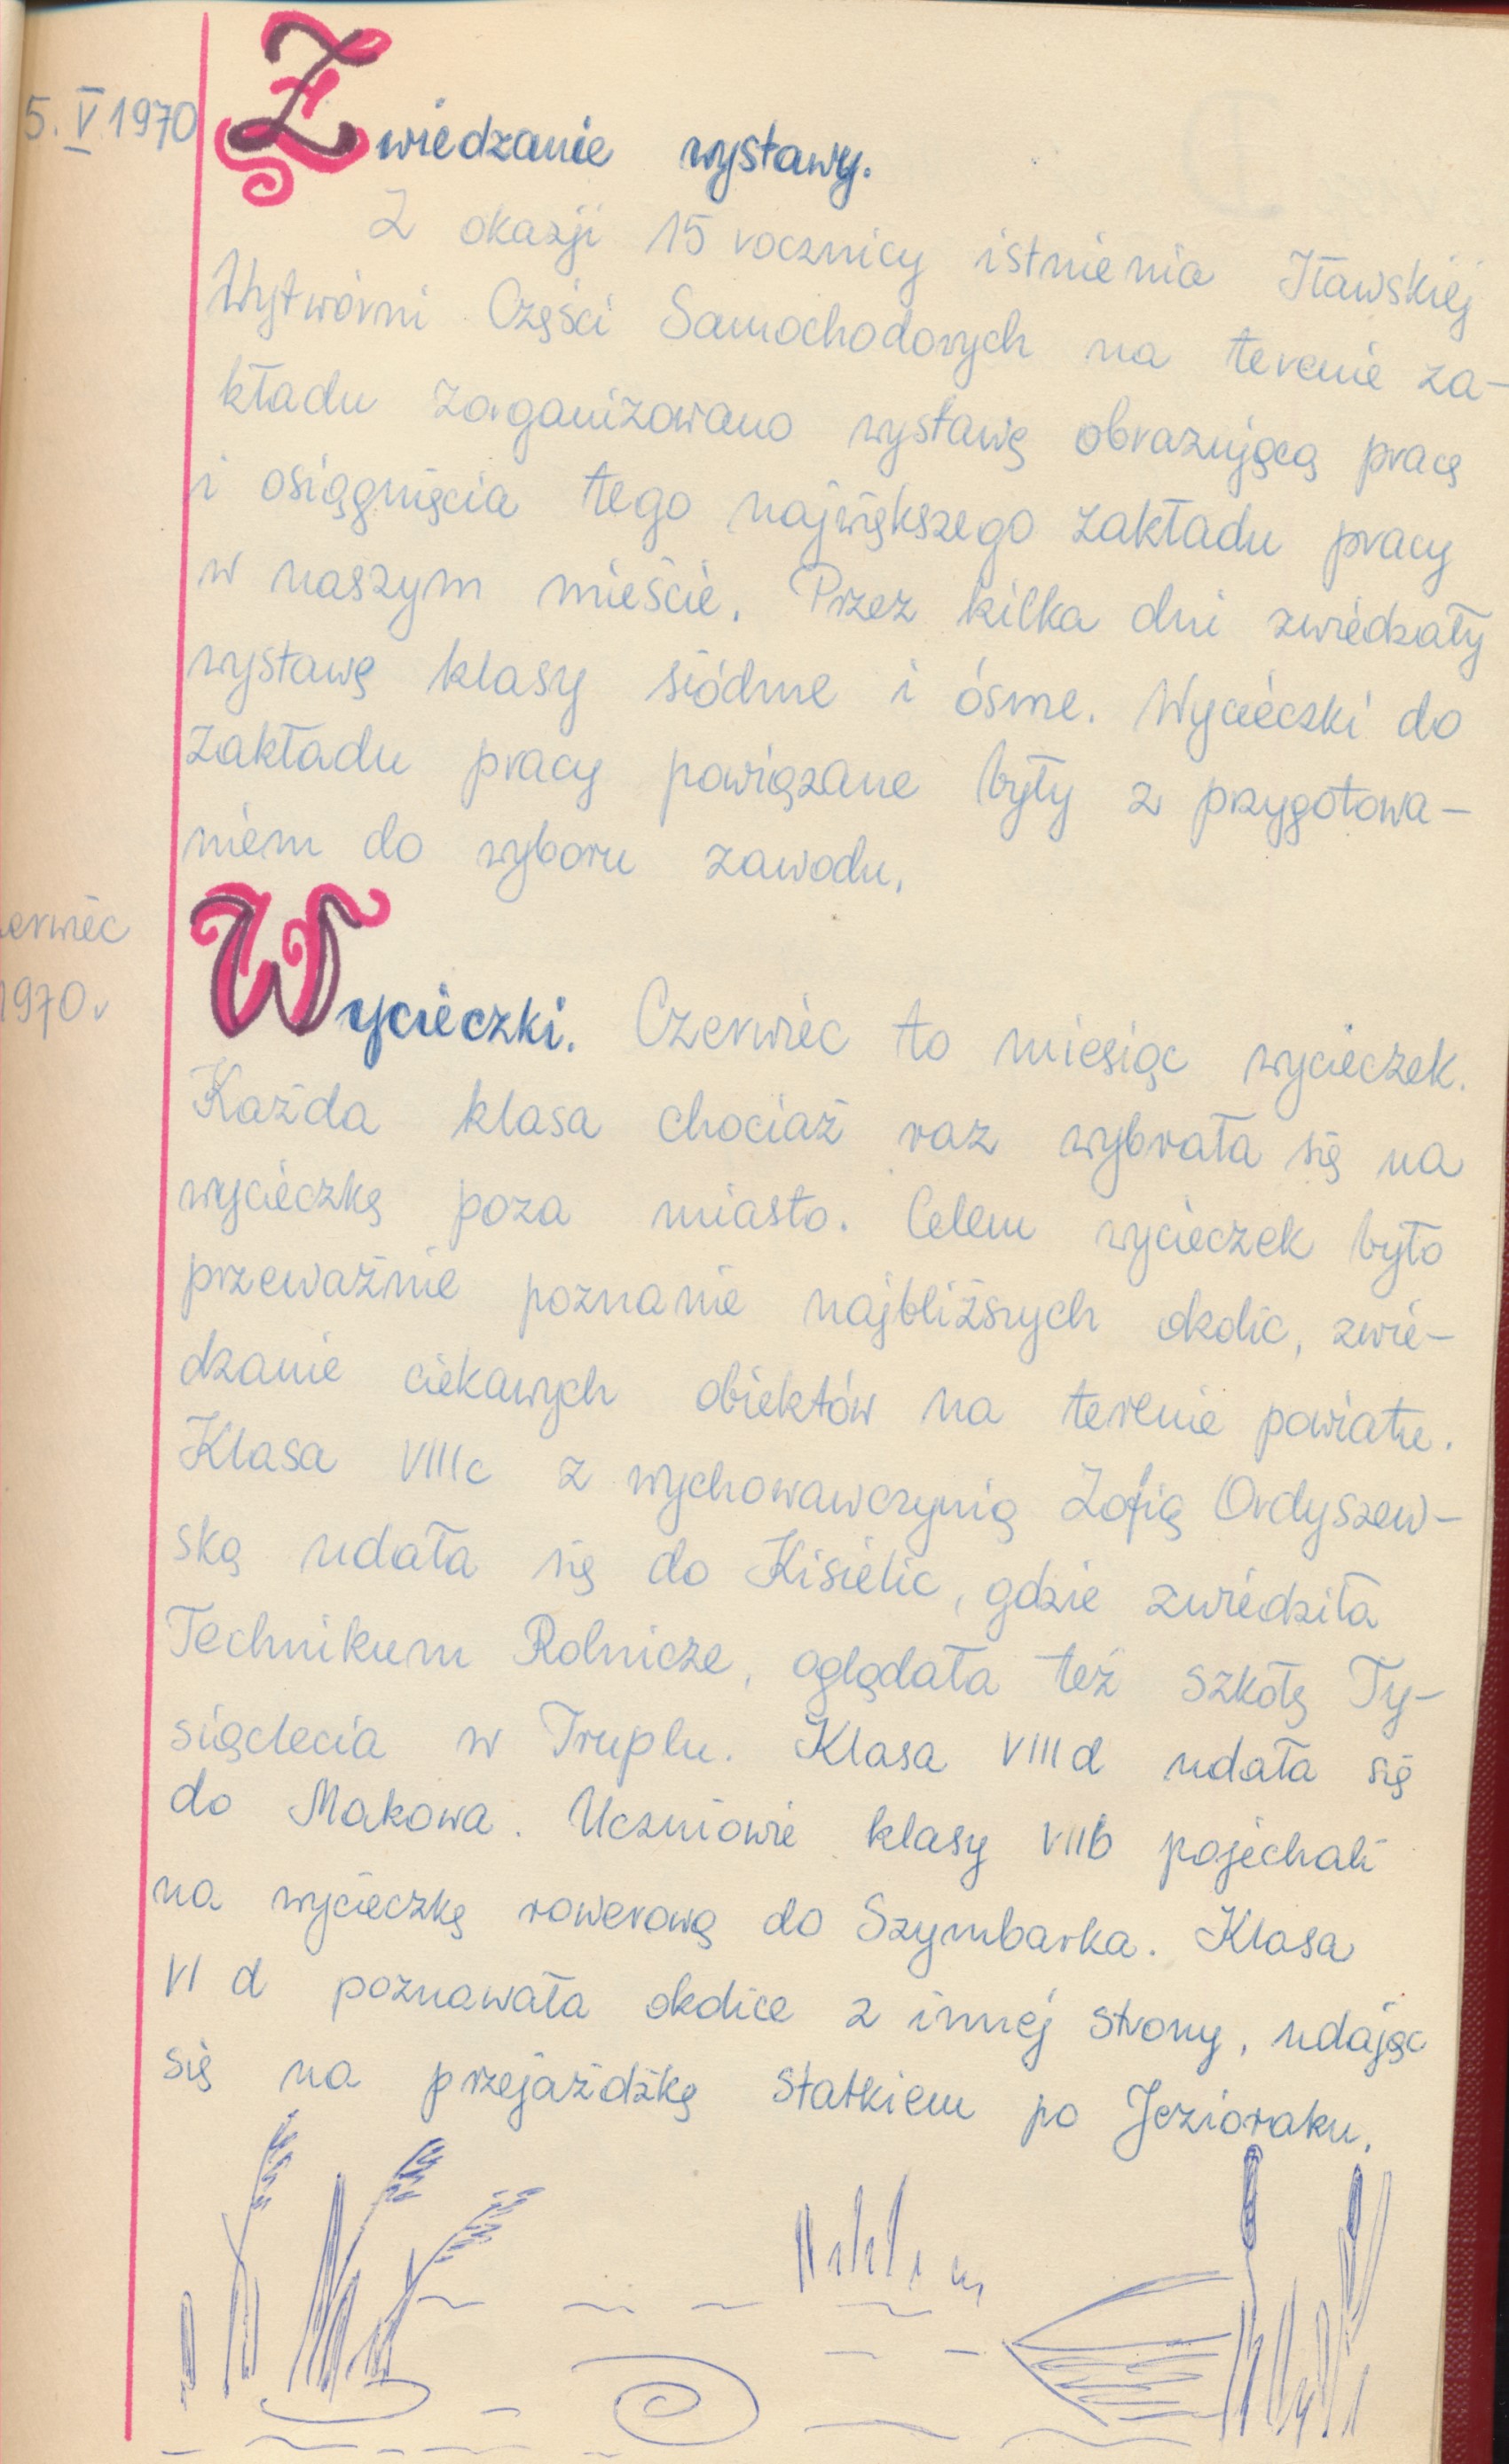 5. V 1970
Zwiedzanie wystawy.
Z okazji 15 rocznicy istnienia Iławskiej
Wytwórni Części Samochodowych na terenie za-
kładu zorganizowano wystawę obrazującą pracę
i osiągnięcia tego największego zakładu pracy
w naszym mieście. Przez kilka dni zwiedzały
wystawę klasy siódme i ósme. Wycieczki do
zakładu pracy powiązane były z przygotowa-
niem do wyboru zawodu.
erwiec
1970r
Wycieczki. Czerwiec to miesiąc wycieczek.
Każda klasa chociaż raz wybrała się na
wycieczkę poza miasto. Celem wycieczek było
przeważnie poznanie najbliższych okolic, zwie-
dzanie ciekawych obiektów na terenie powiatu.
Klasa VIIIc z wychowawczynią Zofią Ordyszew-
ską udała się do Kisielic, gdzie zwiedziła
Technikum Rolnicze, oglądała też szkołę Ty-
siąclecia w Truplu. Klasa VIIId udała się
do Makowa. Uczniowie klasy VIIb pojechali
na wycieczkę rowerową do Szymbarka. Klasa
VI d poznawała okolice z innej strony, udając
się na przejażdżkę statkiem po Jezioraku.